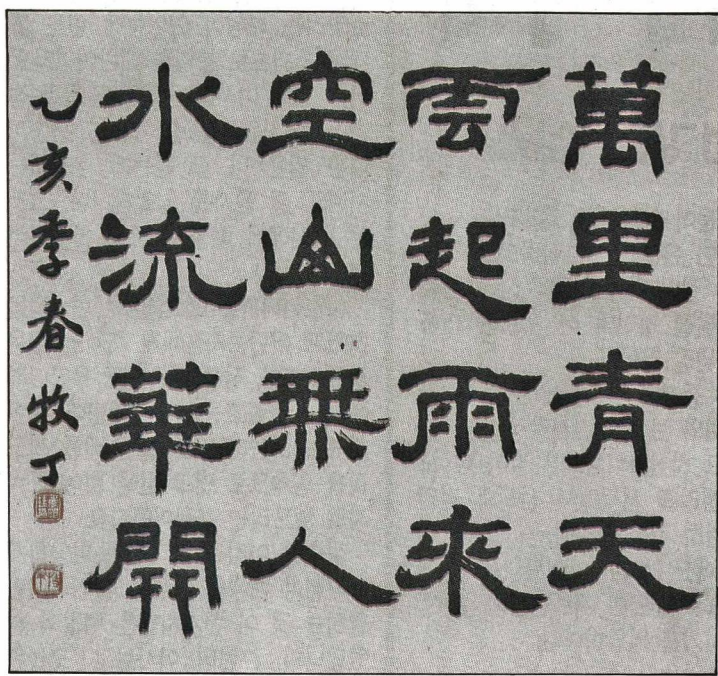 萬里青天
雲起雨來
空山無人
水流華開
乙亥季春 牧丁